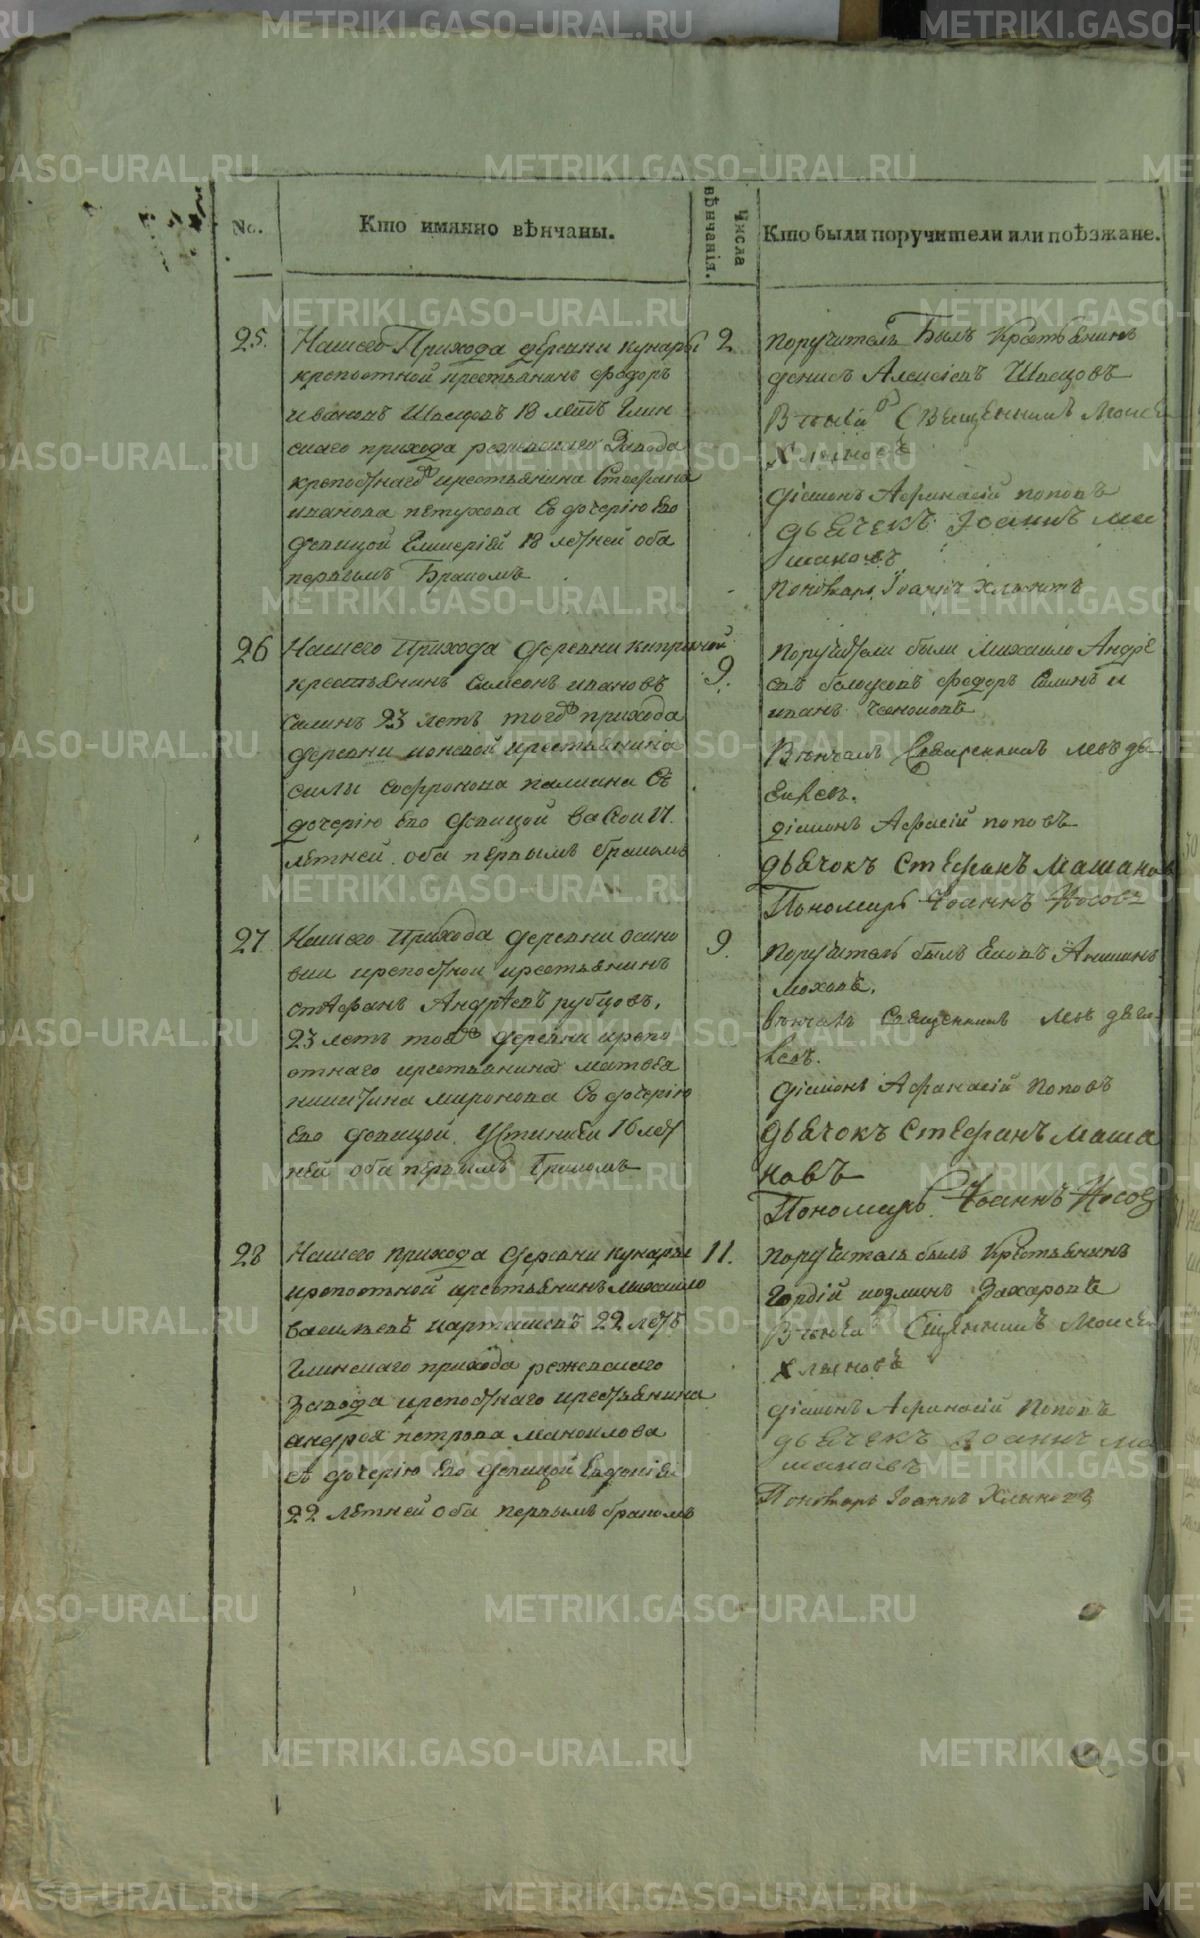 No.
Кто имянно вѣнчаны.
Числа вѣнчанія.
Кто были поручители или поѣзжане.
25.
Нашего Прихода деревни кунары
крепостной крестьянинъ Федоръ
ивановъ Швецовъ 18 летъ Глин
скаго прихода режевскаго Завода
крепостнаго крестьянина Стефана
иванова петухова Съ дочерію Ево
девицой 18 летней оба
первымъ Бракомъ
2
поручитель Былъ Крестьянинъ
денисъ Алексіевъ Швецовъ
Священникъ Моисей
Хлыновъ
діаконъ Афанасій поповъ
дьячекъ Іоаннъ Ма
шановъ
Пономарь Іоаннъ Хлыновъ
26
Нашего Прихода деревни киприной
крестьянинъ Симеонъ ивановъ
Силинъ 23 летъ тогоже прихода
деревни крестьянина
силы софронова Съ
дочерію Ево девицой 17.
летней оба первымъ бракомъ
9.
Поручители были Михайло Андрѣ
евъ белоусовъ Федоръ Силинъ и
иванъ
Венчалъ Священникъ левъ
діаконъ Афасій поповъ
дьячокъ Стефанъ Машанов
Пономарь Іоаннъ Носовъ
27
Нашего Прихода деревни осино
вки крепостной крестьянинъ
стефанъ Андрѣевъ рубцовъ.
23 летъ тояже деревни крепо
стнаго крестьянина матвея
никитина миронова Со дочерію
Ево девицой Устиніей 16 лет
ней оба первымъ Бракомъ
9.
Поручитель былъ
Моховъ.
венчалъ Священникъ левъ
діаконъ Афанасій поповъ
дьячокъ Стефанъ Маша
новъ
Пономарь Іоаннъ Носов
28
Нашего прихода деревни кунары
крепостной крестьянинъ Михайло
васильевъ карташевъ 22 летъ
Глинскаго прихода режевскаго
завода крепостнаго крестьянина
андрея петрова мануилова
съ дочерію Ево девицой Евдокіей
22 летней оба первымъ бракомъ
11.
поручитель былъ Крестьянинъ
Гордій козминъ Захаровъ
Моисей
Хлыновъ
діаконъ Афанасій Поповъ
дьячекъ Іоаннъ Ма
шановъ
Пономарь Іоаннъ Хлыновъ
METRIKI.GASO-URAL.RU